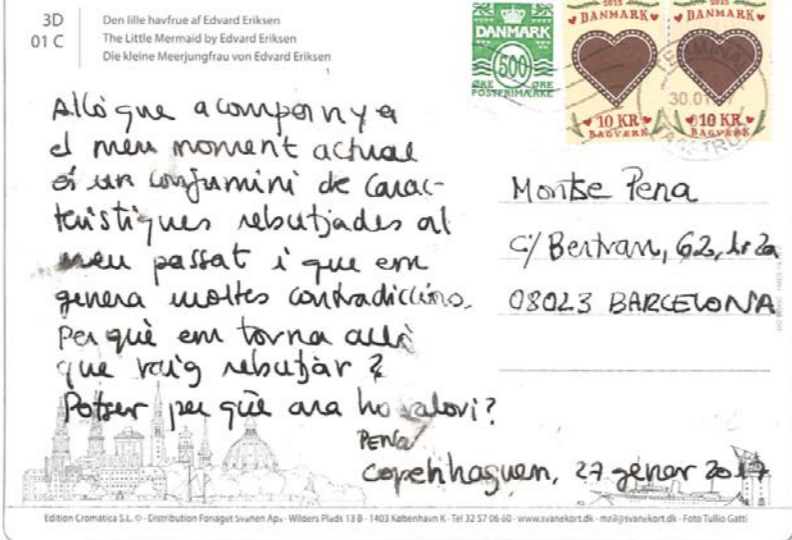 3D
01 C
Den lille havfrue af Edvard Eriksen
The Little Mermaid by Edvard Eriksen
Die kleine Meerjungfrau von Edvard Eriksen
DANMARK
500
ØRE ØRE
POSTFRIMÆRKE
2015
DANMARK
10 KR
BAGVÆRK
2015
DANMARK
10 KR
BAGVÆRK
TERMINAL
30.01
Allò que acompanya
el meu moment actual
és un conjumini de carac-
terístiques rebutjades al
meu passat i que em
genera moltes contradiccions.
Per què em torna allò
que vaig rebutjar?
Potser per què ara ho valori?
PENA
Copenhaguen, 27 gener 2017
Montse Pena
C/ Bertran, 62, 1r 2a
08023 BARCELONA
Edition Cromática S.L. © - Distribution Fonaget Svanen Aps - Wilders Plads 13 B - 1403 København K - Tel 32 57 06 60 - www.svanekort.dk - mail@svanekort.dk - Foto Tullio Gatti